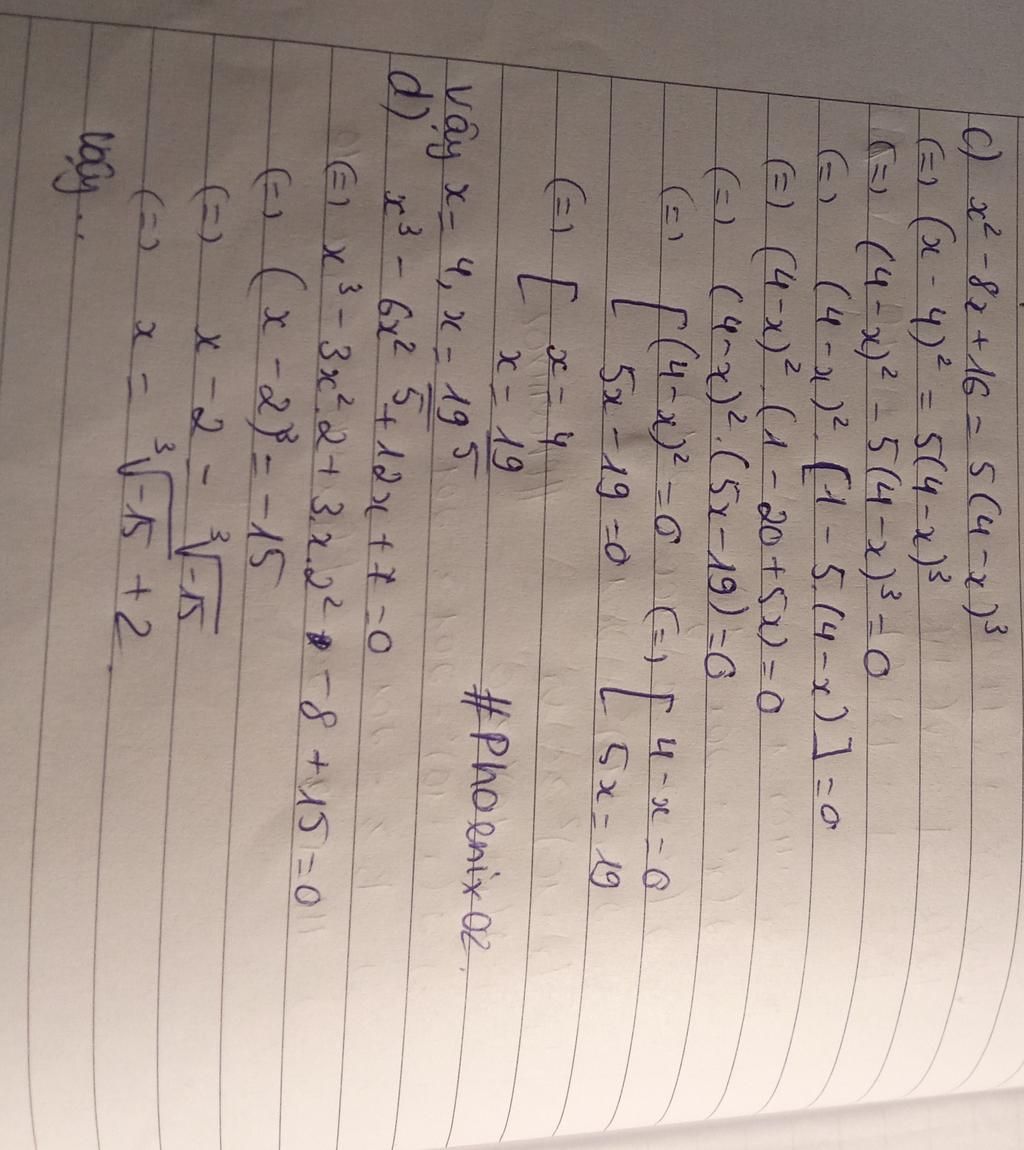 c) x² - 8x + 16 = 5(4-x)³
(=) (x - 4)² = 5(4-x)³
(=) (4-x)² - 5(4-x)³ = 0
(=) (4-x)². [1 - 5.(4-x)] = 0
(=) (4-x)². (1 - 20 + 5x) = 0
(=) (4-x)². (5x - 19) = 0
(=) [ (4-x)² = 0 (=) [ 4 - x = 0
5x - 19 = 0 5x = 19
(=) [ x = 4
x = 19/5
Vậy x = 4, x = 19/5 #Phoenix02.
d) x³ - 6x² + 12x + 7 = 0
(=) x³ - 3x².2 + 3.x.2² - 8 + 15 = 0
(=) (x - 2)³ = -15
(=) x - 2 = ³√-15
(=) x = ³√-15 + 2.
Vậy...